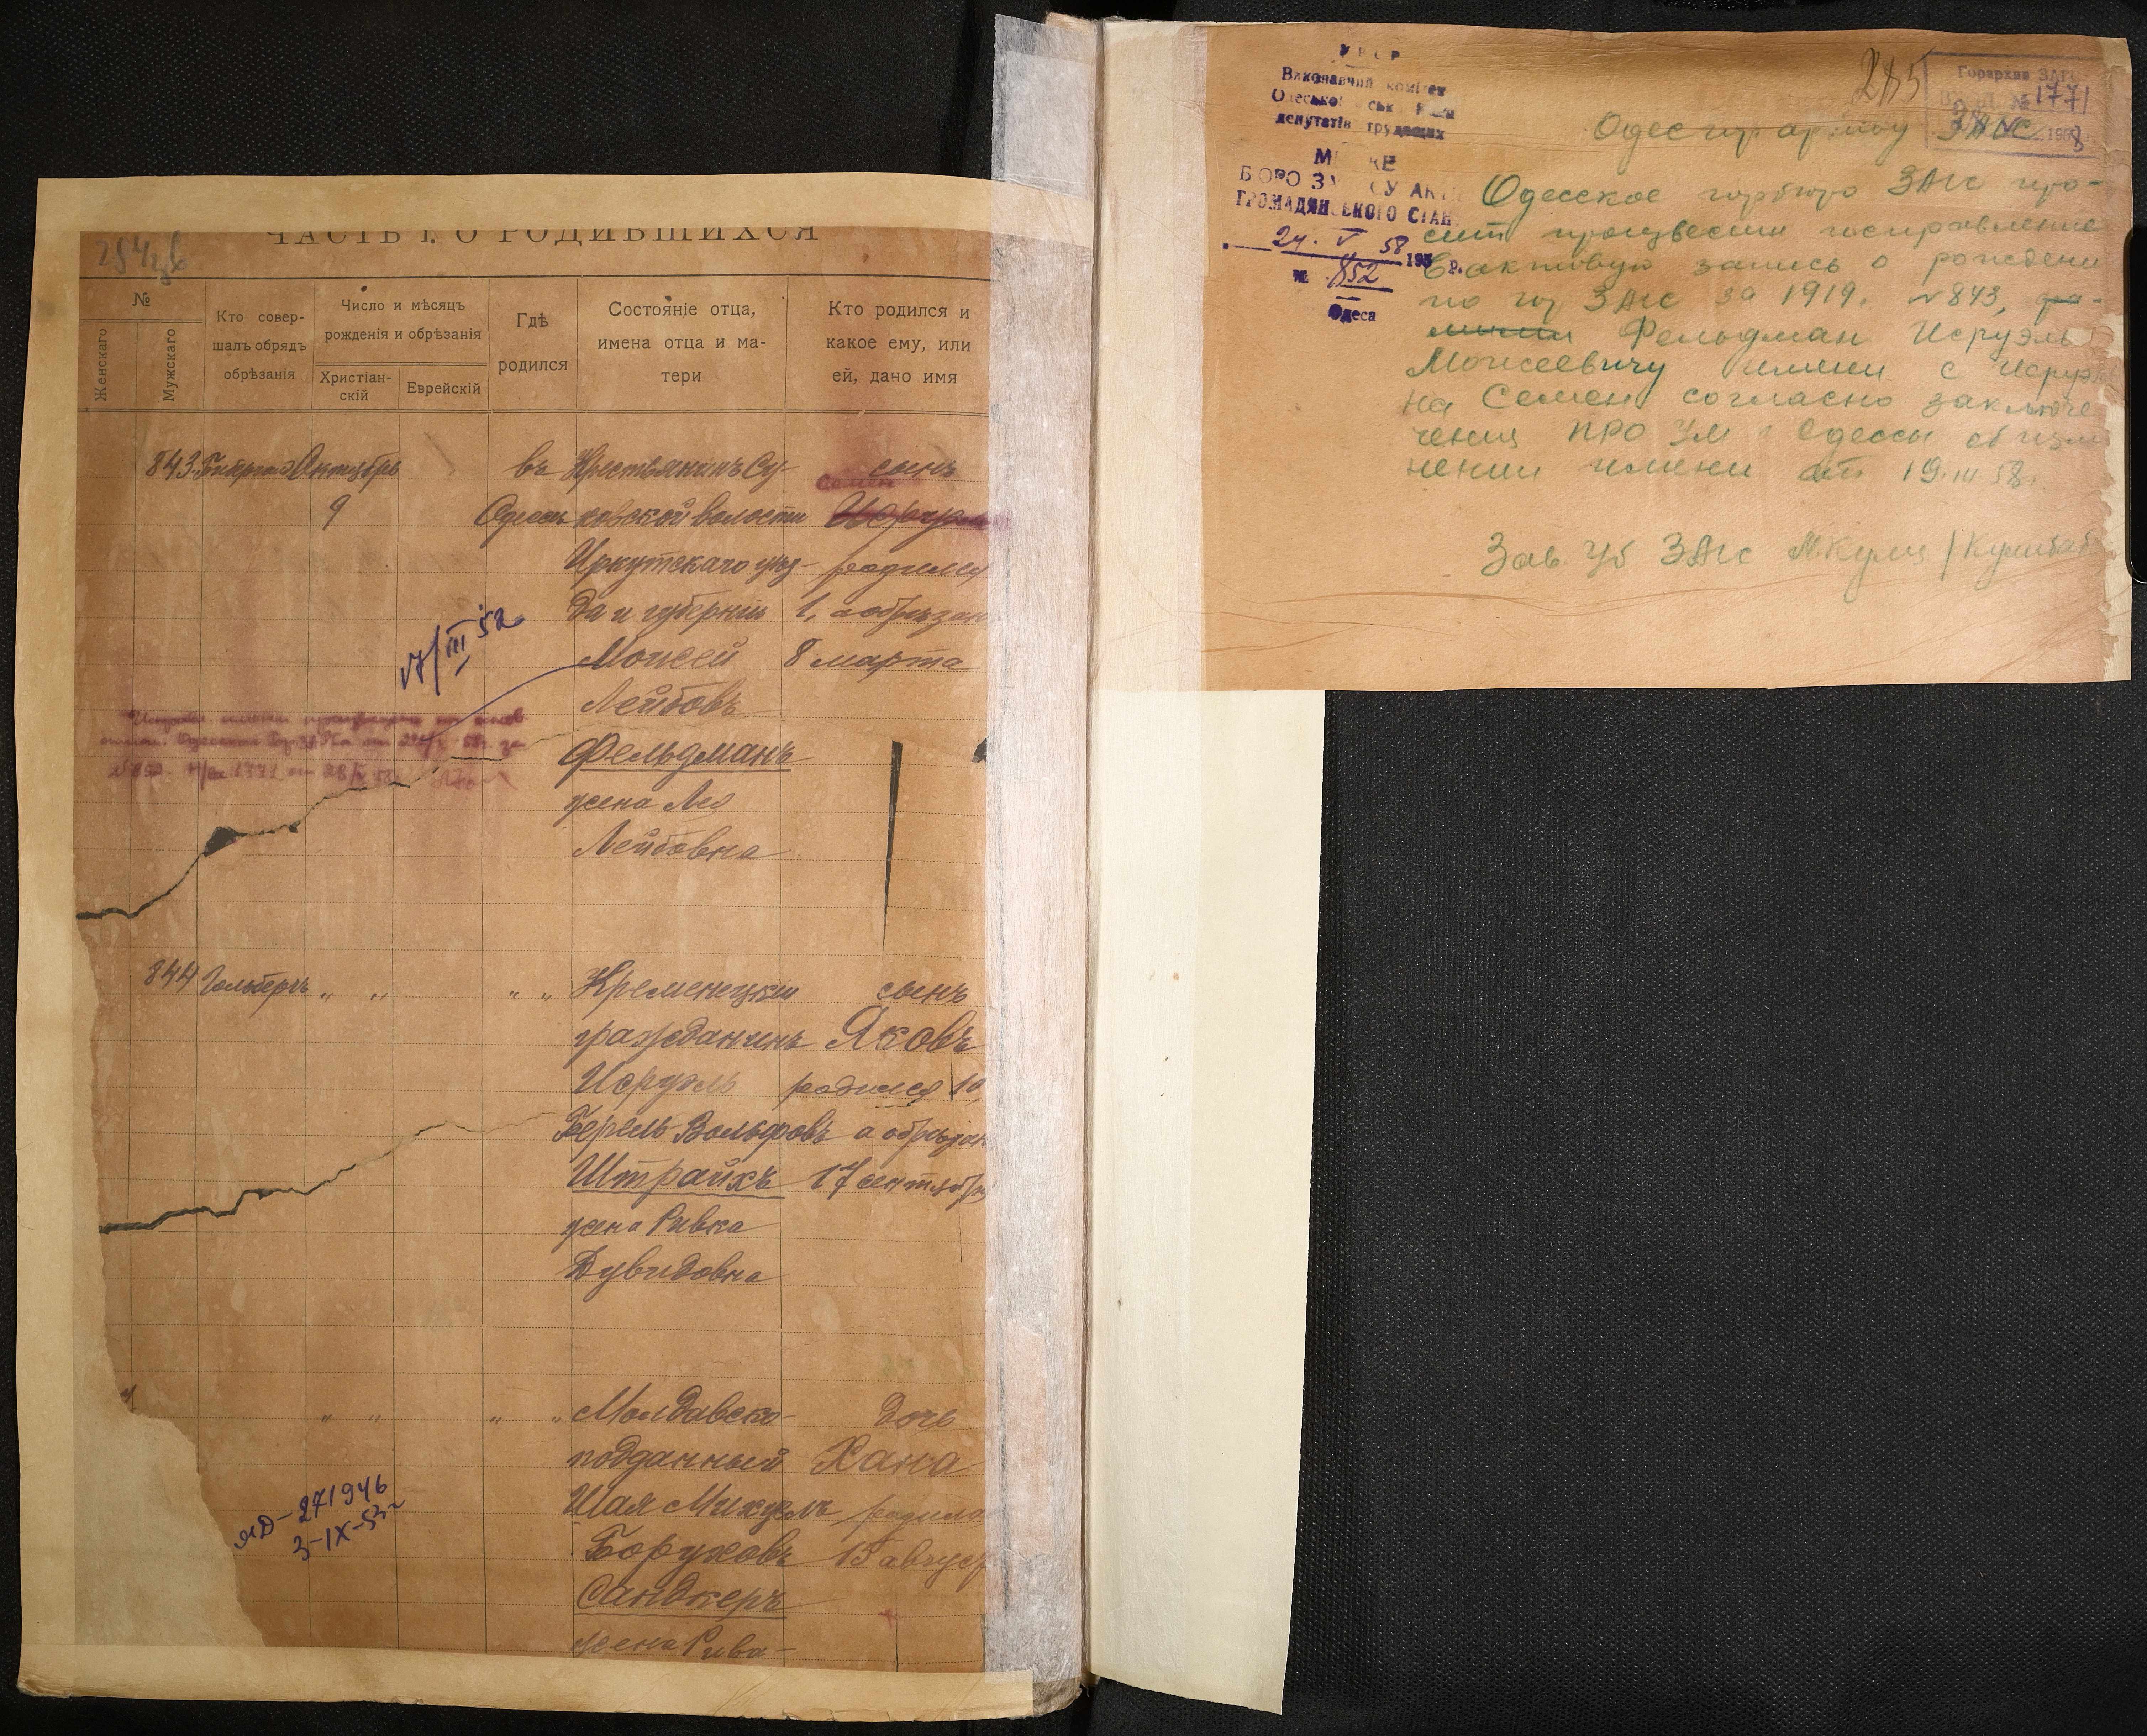 ЧАСТЬ I. О РОДИВШИХСЯ
№
Женскаго
Мужскаго
Кто совер-
шалъ обрядъ
обрѣзанія
Число и мѣсяцъ
рожденія и обрѣзанія
Христіан-
скій
Еврейскій
Гдѣ
родился
Состояніе отца,
имена отца и ма-
тери
Кто родился и
какое ему, или
ей, дано имя
843.
Октябрь
9
въ
Одессѣ
Крестьянинъ Су-
ковской волости
Иркутскаго уѣз-
да и губерніи
Моисей
Лейбовъ
Фельдманъ
жена Лея
Лейбовна
сынъ
Семен
родился
1, а обрѣзан
8 марта
17/III 52
844
Гольберъ
„ „
„ „
Кременецкій
гражданинъ
Исруэль
Берель Вольфовъ
Штрайхъ
жена Ривка
Дувидовна
сынъ
Яковъ
родился 10,
а обрѣзан
17 сентябр
„ „
„ „
Молдавско-
подданный
Шая Михель
Боруховъ
Сандлеръ
жена Рива-
дочь
Хана
родила
15 авгус
ЯД-271946
3-IX-53
УРСР
Виконавчий комітет
Одеської ськ Ради
депутатів трудящих
М КЕ
БЮРО ЗА СУ АК
ГРОМАДЯНСЬКОГО СТАН
24. V 58 195 р.
№ 852
Одеса
285
Горархив ЗАГС
№ 1771
Одесгорархиву ЗАГС
Одесское горбюро ЗАГС про-
сит произвести исправление
в актовую запись о рождени
по гор ЗАГС за 1919. №843, фа-
милии Фельдман Исруэль
Моисеевичу имени с Исруэл
на Семен согласно заключе
чения ПРО УМ г Одессы об изм
нении имени от 19.III 58.
Зав. г/б ЗАГС